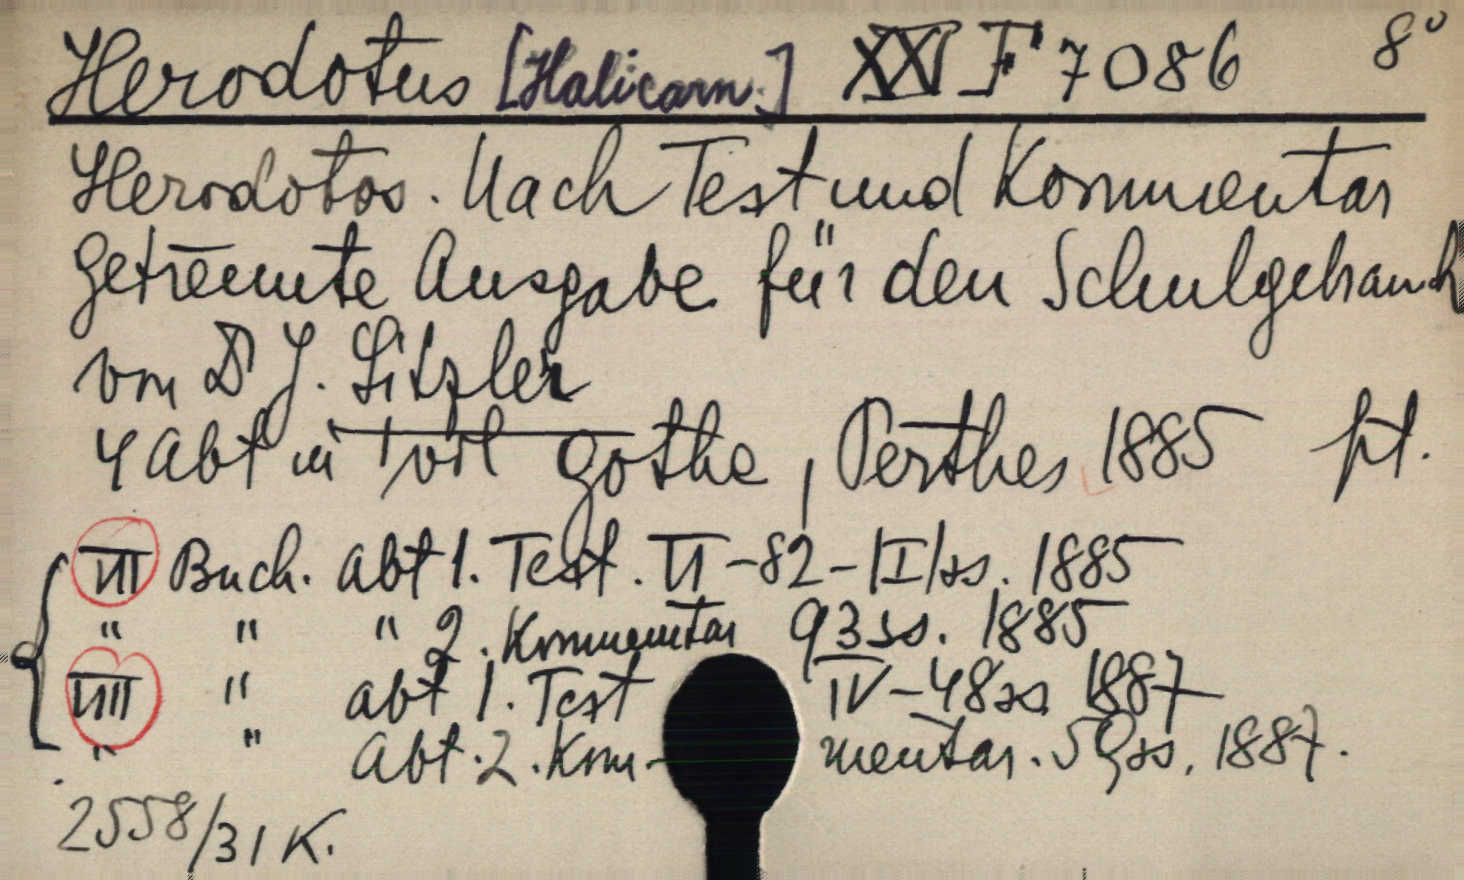 Herodotus [Halicarn.] XXI F 7086 8°
Herodotos. Nach Text und Kommentar
getrennte Ausgabe für den Schulgebrauch
von Dr J. Sitzler
4 Abt in 1 vol Gotha, Perthes 1885 pł.
VII Buch. Abt 1. Text. VI-82-|I|ss. 1885
" " " 2. Kommentar 93 ss. 1885
VIII " Abt 1. Text IV-48 ss 1887
" " Abt. 2. Kom- mentar. 59 ss. 1887.
2558/31 K.